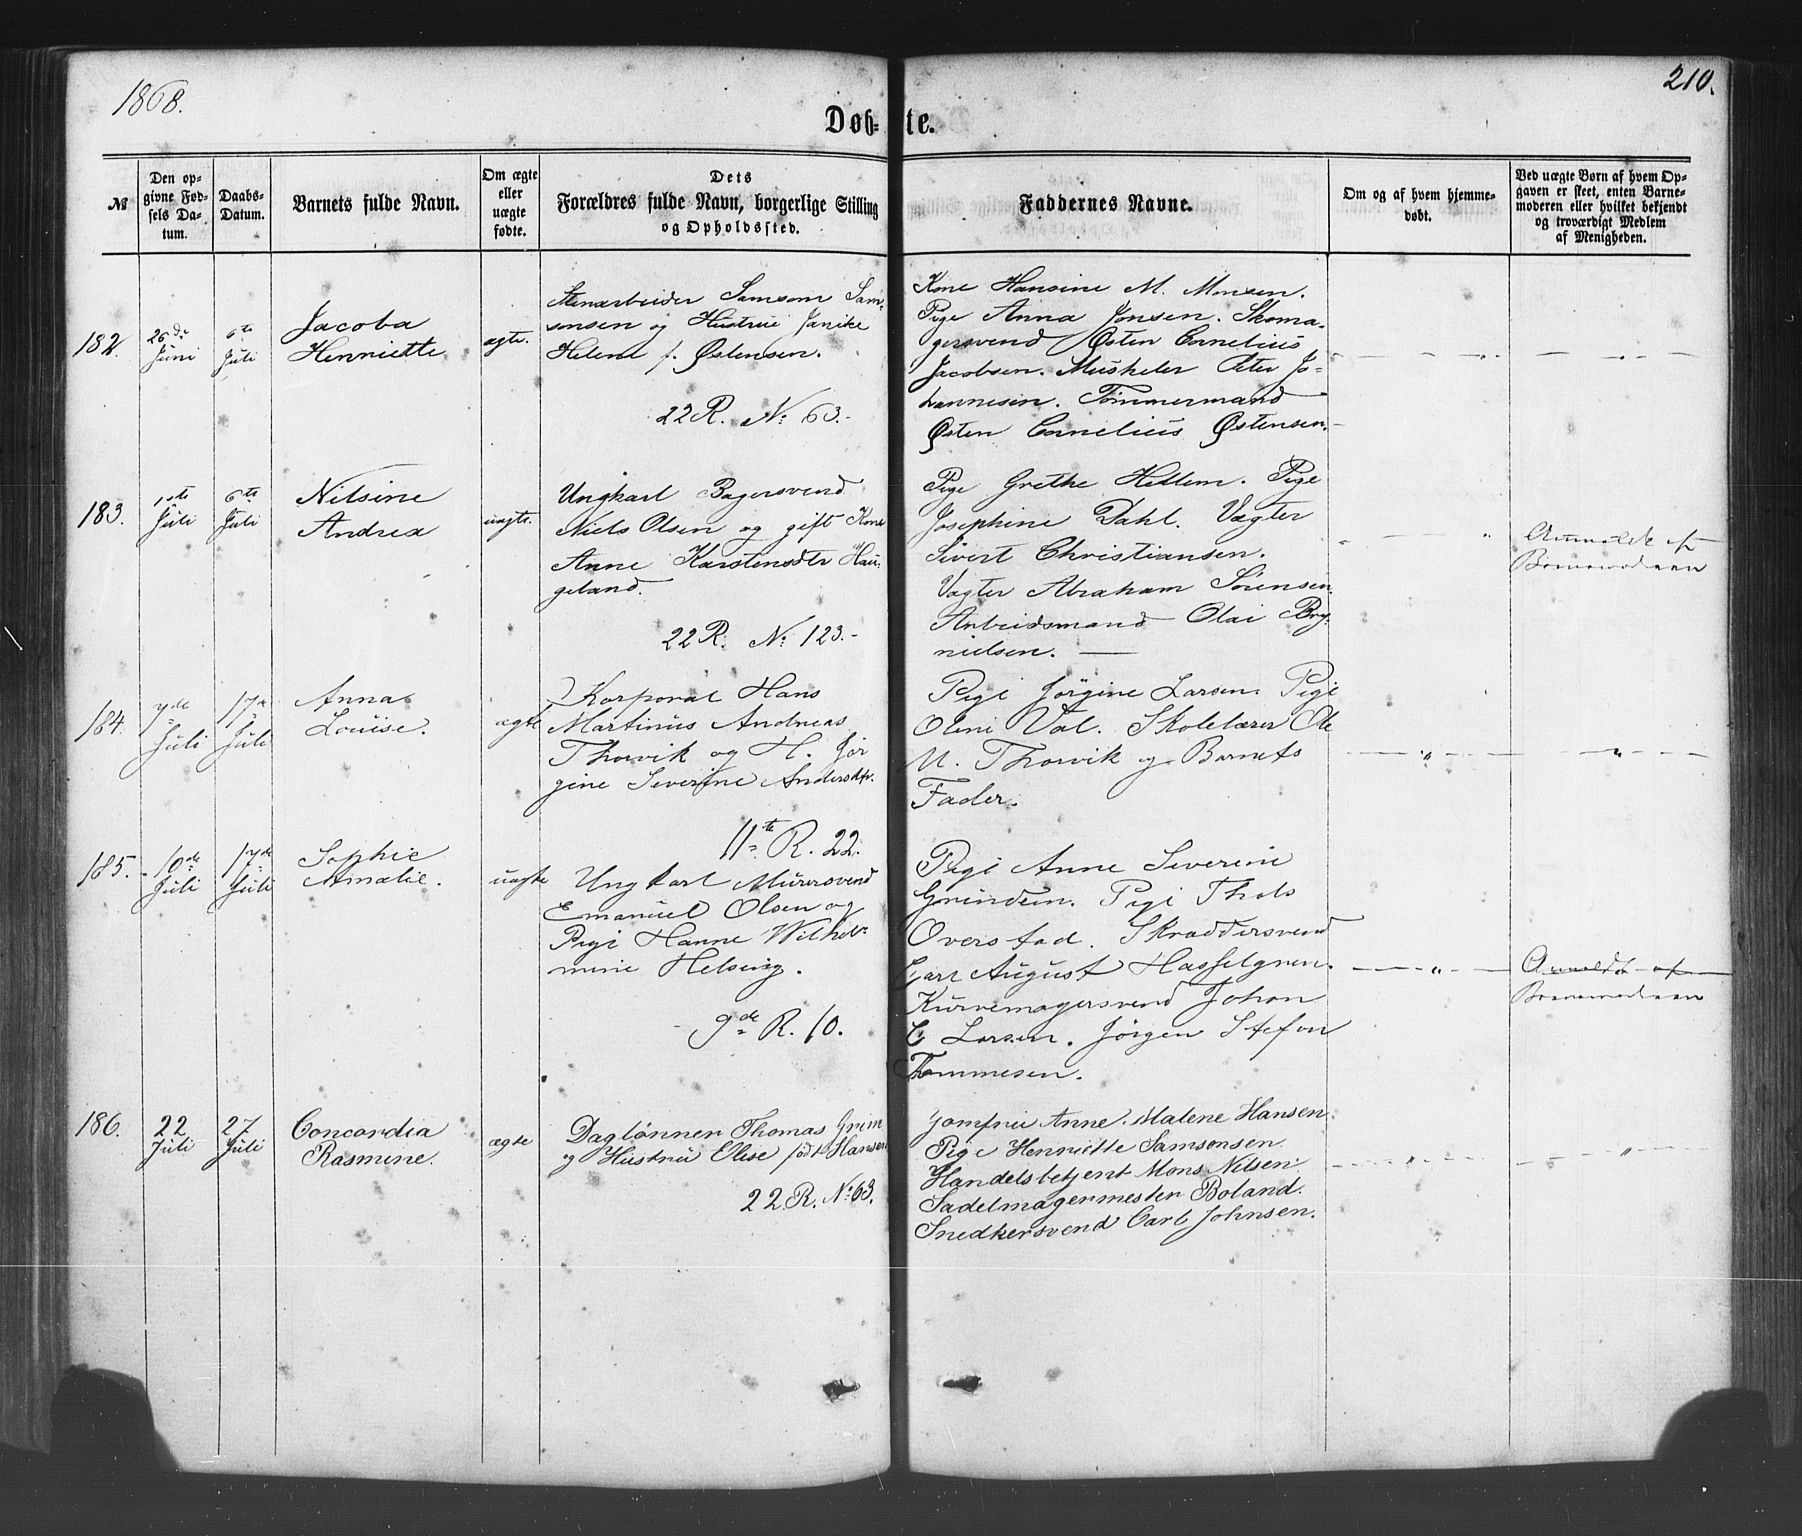 1868.
210.
Døb-te.
№
Den op-
givne Fød-
sels Da-
tum.
Daabs-
Datum.
Barnets fulde Navn.
Om ægte
eller
uægte
fødte.
Dets
Forældres fulde Navn, borgerlige Stilling
og Opholdssted.
Faddernes Navne.
Om og af hvem hjemme-
døbt.
Ved uægte Børn af hvem Op-
gaven er skeet, enten Barne-
moderen eller hvilket bekjendt
og troværdigt Medlem
af Menigheden.
182.
26de
Juni
6te
Juli
Jacoba
Henriette
ægte.
Stenarbeider Samson Sam-
sonsen og Hustrue Janike
Helene f. Østensen.
22 R. No: 63.-
Kone Hansine M. Monsen.
Pige Anna Jonsen. Skoma-
gersvend Østen Cornelius
Jacobsen. Musketer Peter Jo-
hannesen. Tømmermand
Østen Cornelius Østensen.
183.
1ste
Juli
6te
Juli
Nilsine
Andrea
uægte.
Ungkarl Bagersvend
Niels Olsen og gift Kone
Anne Karstensdtr Hau-
geland.
22 R. No: 123.-
Pige Grethe Hetlem. Pige
Josephine Dahl. Vægter
Sivert Christiansen.
Vægter Abraham Sørensen.
Arbeidsmand Olai Bry-
nielsen.
Anmeldt af
Barnemoderen
184.
7de
Juli
17de
Juli
Anna
Louise.
ægte
Korporal Hans
Martinus Andreas
Thorvik og H. Jør
gine Severine Andersdtr.
11te R. 22.
Pige Jørgine Larsen. Pige
Oleni Val. Skolelærer Ole
M. Thorvik og Barnets
Fader.
185.
10de
Juli
17de
Juli
Sophie
Amalie.
uægte
Ungkarl Murersvend
Emanuel Olsen og
Pige Hanne Wilhel-
mine Helsing.
9de R. 10.
Pige Anne Severine
Pige
Overstad. Skræddersvend
Carl August Hasselgren.
Kurvemagersvend Johan
C Larsen. Jørgen Stefan
Thommesen.
Anmeldt af
Barnemoderen
186.
22
Juli
27
Juli
Concordia
Rasmine.
ægte
Daglønner Thomas Grim
og Hustrue Elise født Hansen
22. R. No: 63.
Jomfrue Anne Malene Hansen.
Pige Henriette Samsonsen
Handelsbetjent Mons Nilsen.
Sadelmagermester Boland.
Snedkersvend Carl Johnsen.